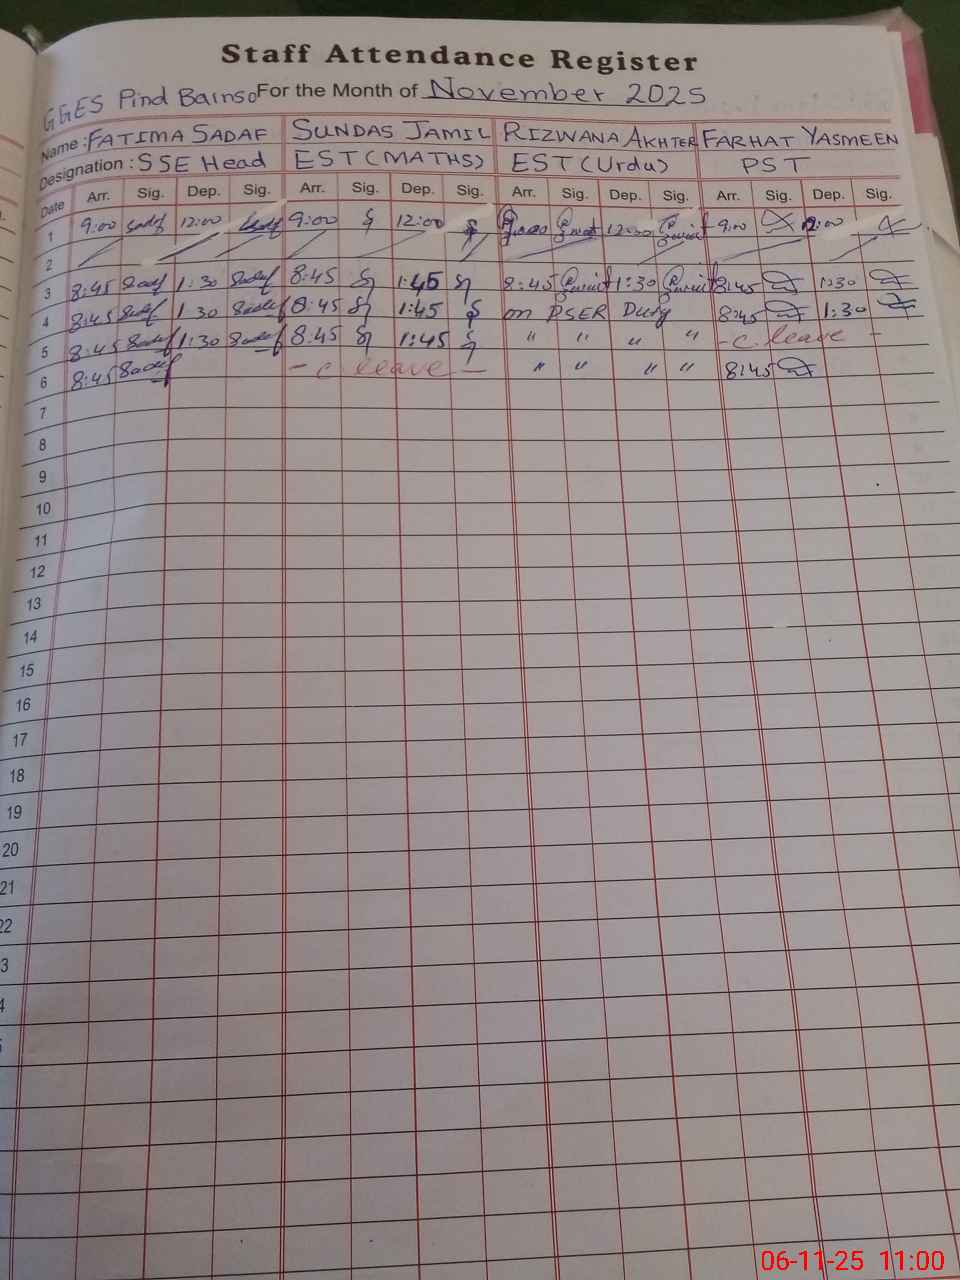 Staff Attendance Register
GGES Pind Bainso For the Month of November 2025
Name : FATIMA SADAF SUNDAS JAMIL RIZWANA AKHTER FARHAT YASMEEN
Designation : SSE Head EST (MATHS) EST (Urdu) PST
Date Arr. Sig. Dep. Sig. Arr. Sig. Dep. Sig. Arr. Sig. Dep. Sig. Arr. Sig. Dep. Sig.
1 9:00 Sadaf 12:00 Sadaf 9:00 12:00 12:00 9:00 12:00
2
3 8:45 Sadaf 1:30 Sadaf 8:45 1:45 8:45 1:30 8:45 1:30
4 8:45 Sadaf 1:30 Sadaf 8:45 1:45 on PSER Duty 8:45 1:30
5 8:45 Sadaf 1:30 Sadaf 8:45 1:45 " " " " - c. leave -
6 8:45 Sadaf - c. leave - " " " " 8:45
7
8
9
10
11
12
13
14
15
16
17
18
19
20
21
22
3
4
06-11-25 11:00